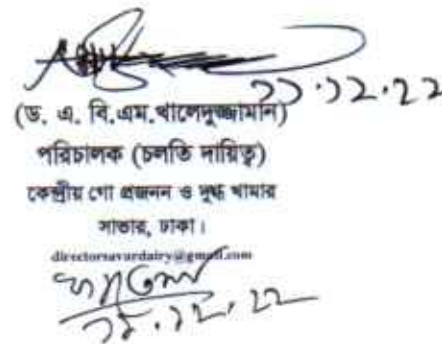 ১১.১২.২২
(ড. এ. বি.এম.খালেদুজ্জামান)
পরিচালক (চলতি দায়িত্ব)
কেন্দ্রীয় গো প্রজনন ও দুগ্ধ খামার
সাভার, ঢাকা।
directorsavardairy@gmail.com